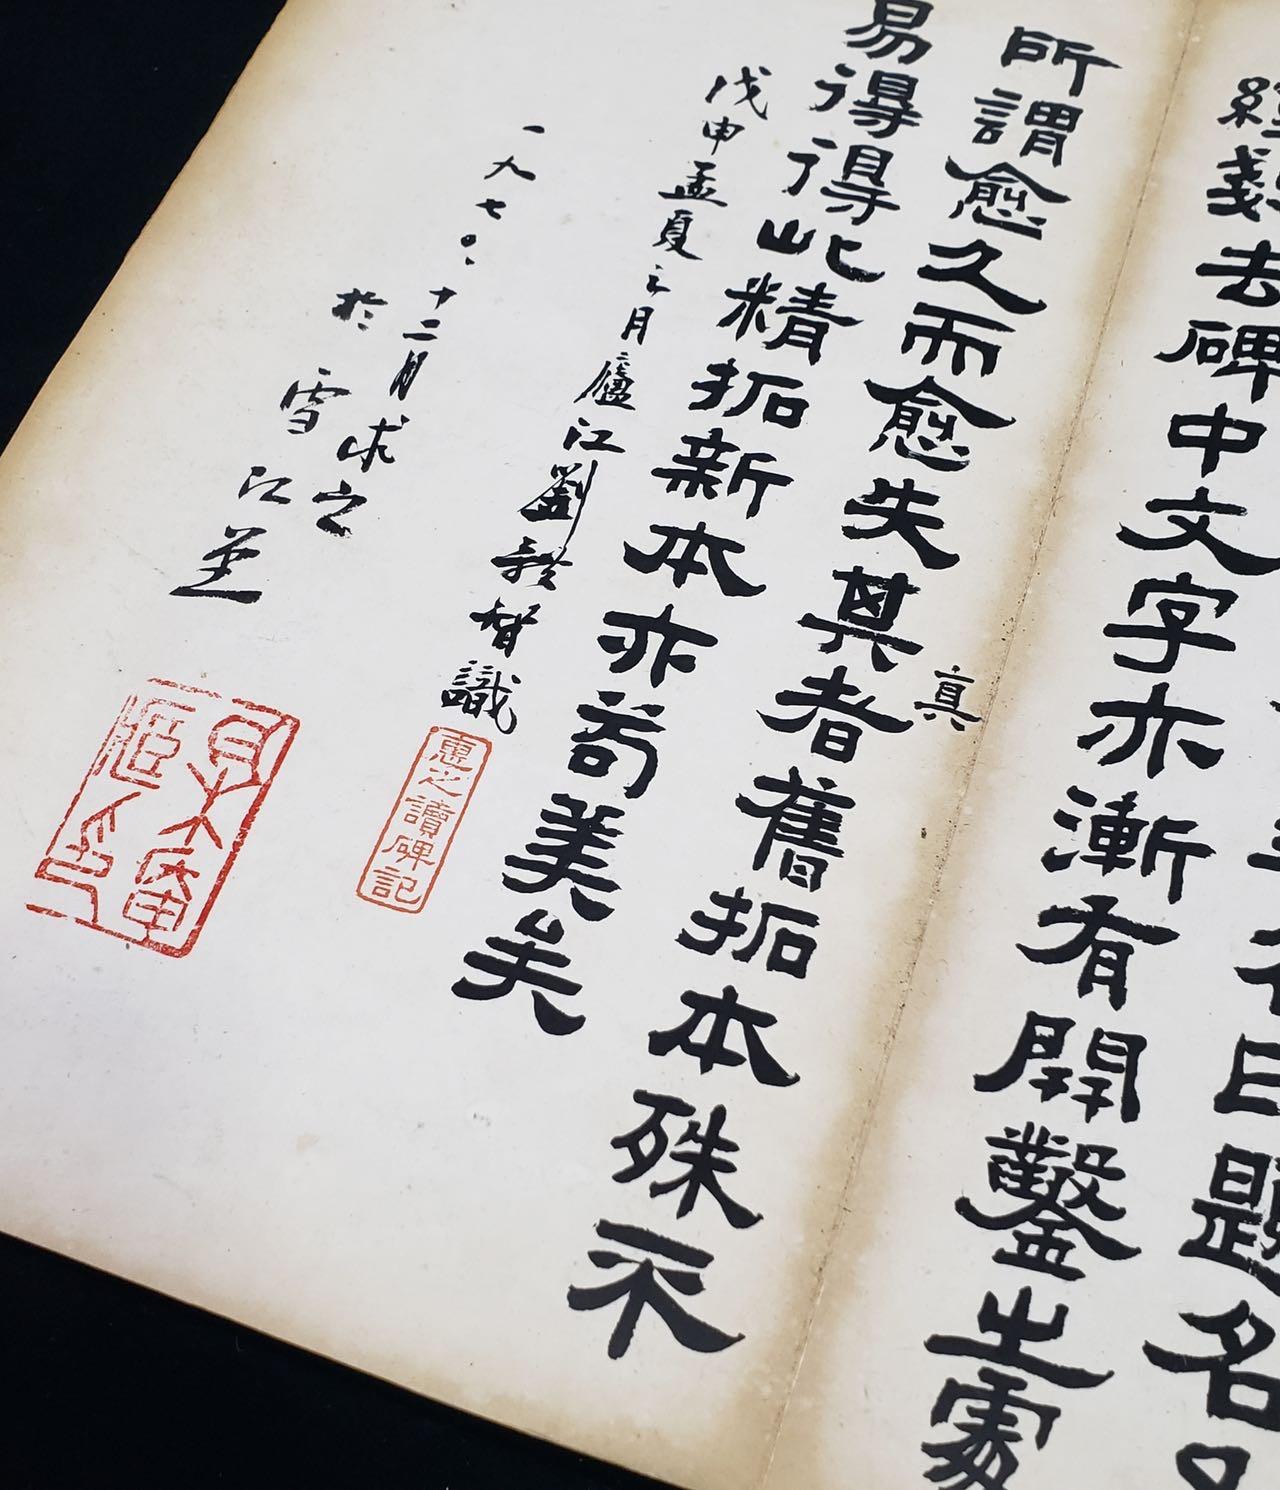 題名
去碑中文字亦漸有開鑿之處
所謂愈久而愈失其者舊拓本殊不
真
易得得此精拓新本亦苟美矣
戊申孟夏之月廬江劉督識
惠之讀碑記
一九七〇.十二月求之
於雪江